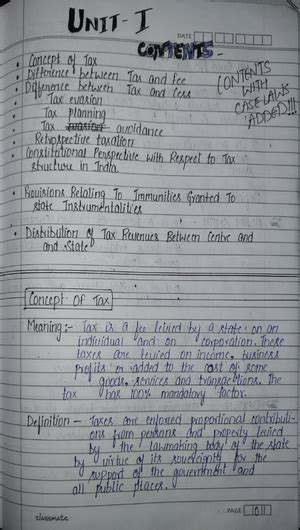 UNIT - I
DATE
CONTENTS
CONTENTS
WITH
CASE LAWS
ADDED!!!
• Concept of Tax
• Difference between Tax and Fee
• Difference between Tax and Cess
Tax evasion
Tax planning
Tax avoidance
Retrospective taxation
• Constitutional Perspective with Respect to Tax
structure in India.
• Provisions Relating To Immunities Granted To
state Instrumentalities
• Distribution of Tax Revenues Between Centre and
and State
Concept Of Tax
Meaning :- Tax is a fee levied by a state on an
individual and on corporation. These
taxes are levied on income, business
profits or added to the cost of some
goods, services and transactions. The
tax has 100% mandatory factor.
Definition - Taxes are enforced proportional contributi-
ons from persons and property levied
by the lawmaking body of the state
by virtue of its sovereignty for the
support of the government and
all public places.
classmate
PAGE